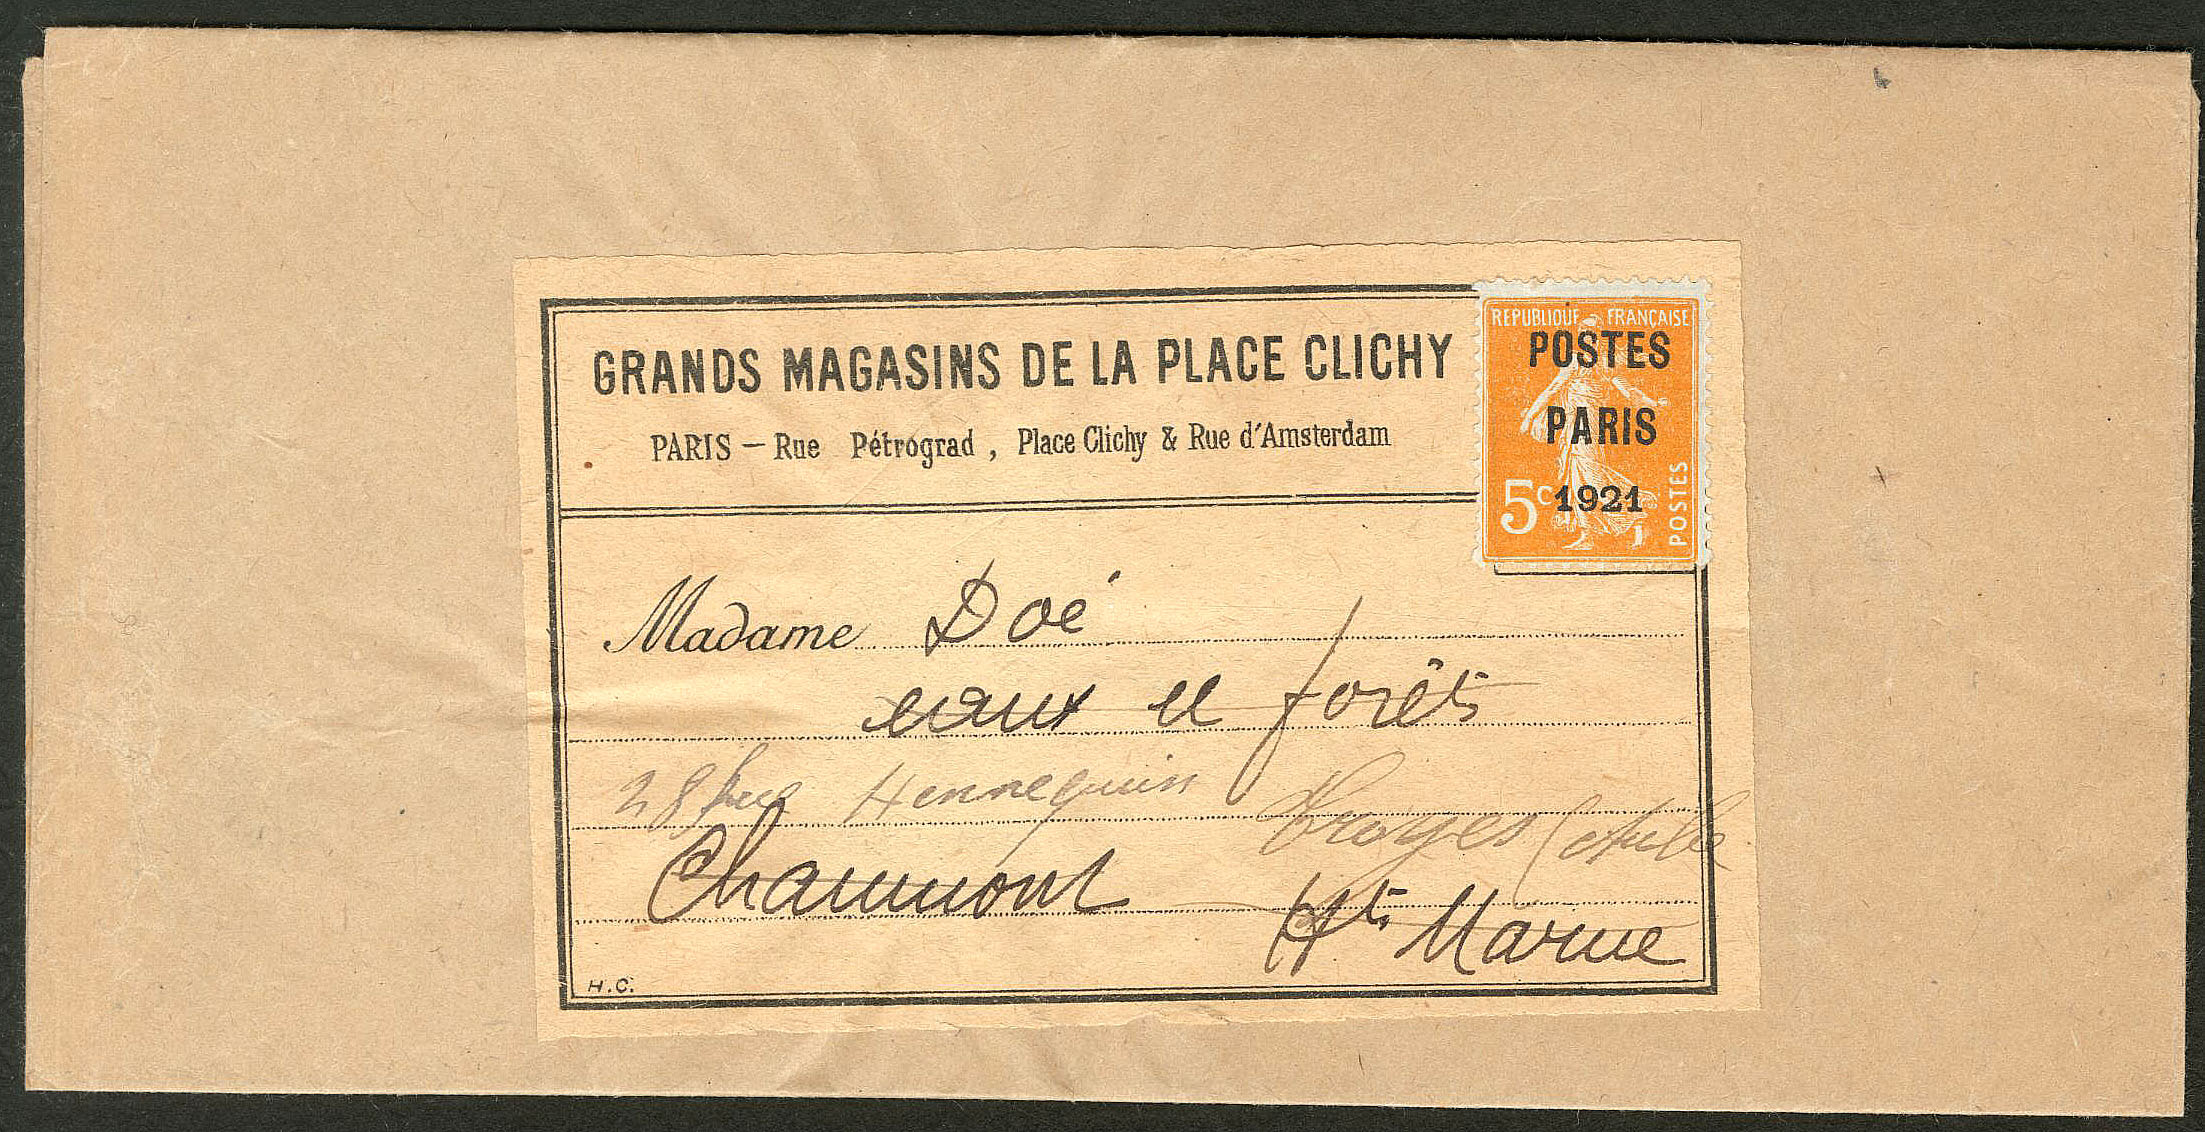 GRANDS MAGASINS DE LA PLACE CLICHY
PARIS — Rue Pétrograd, Place Clichy & Rue d'Amsterdam
REPUBLIQUE FRANÇAISE
POSTES
PARIS
5c 1921
POSTES
Madame Doé
eaux et forêts
28 Rue Hennequin Troyes (Aube
Chaumont
Hte Marne
H.C.